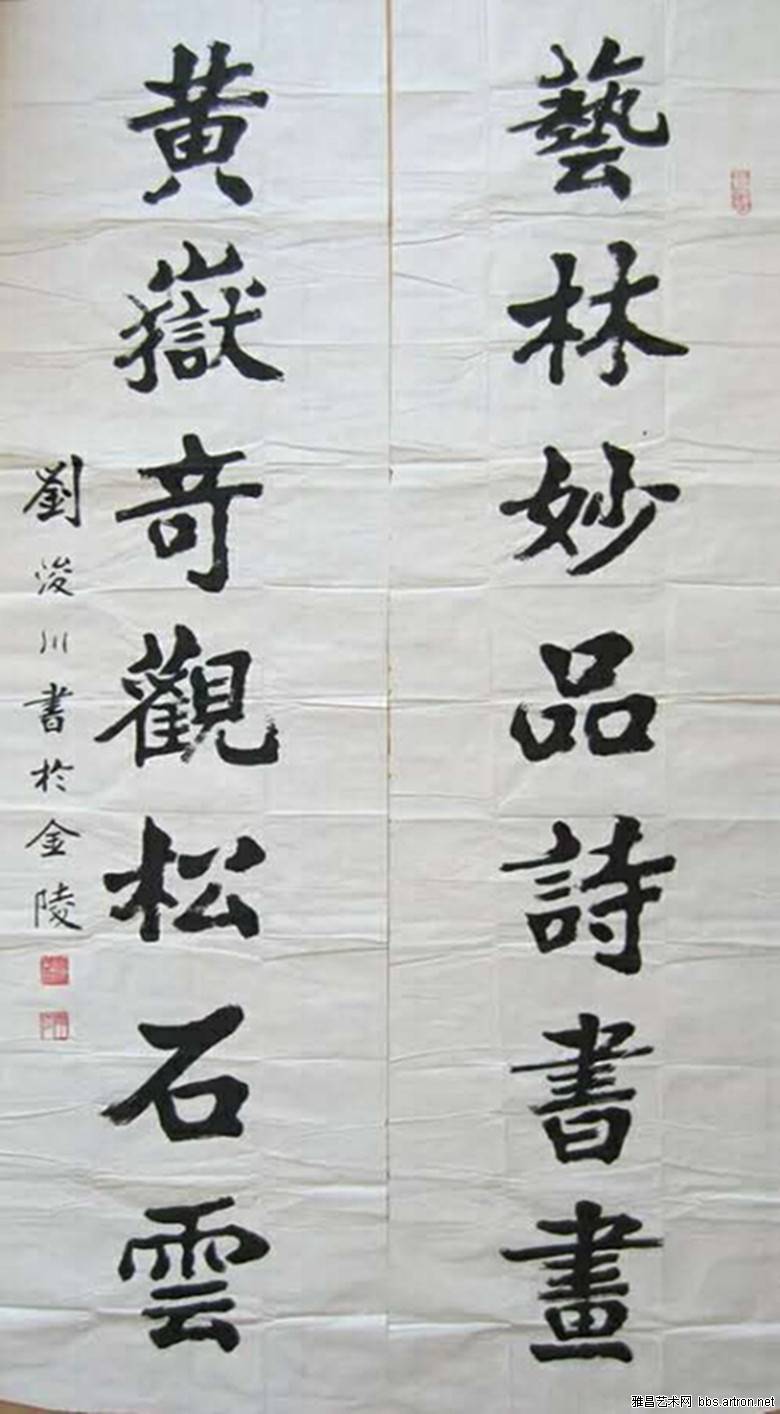 藝林妙品詩書畫
黃嶽奇觀松石雲
劉浚川書於金陵
雅昌艺术网 bbs.artron.net